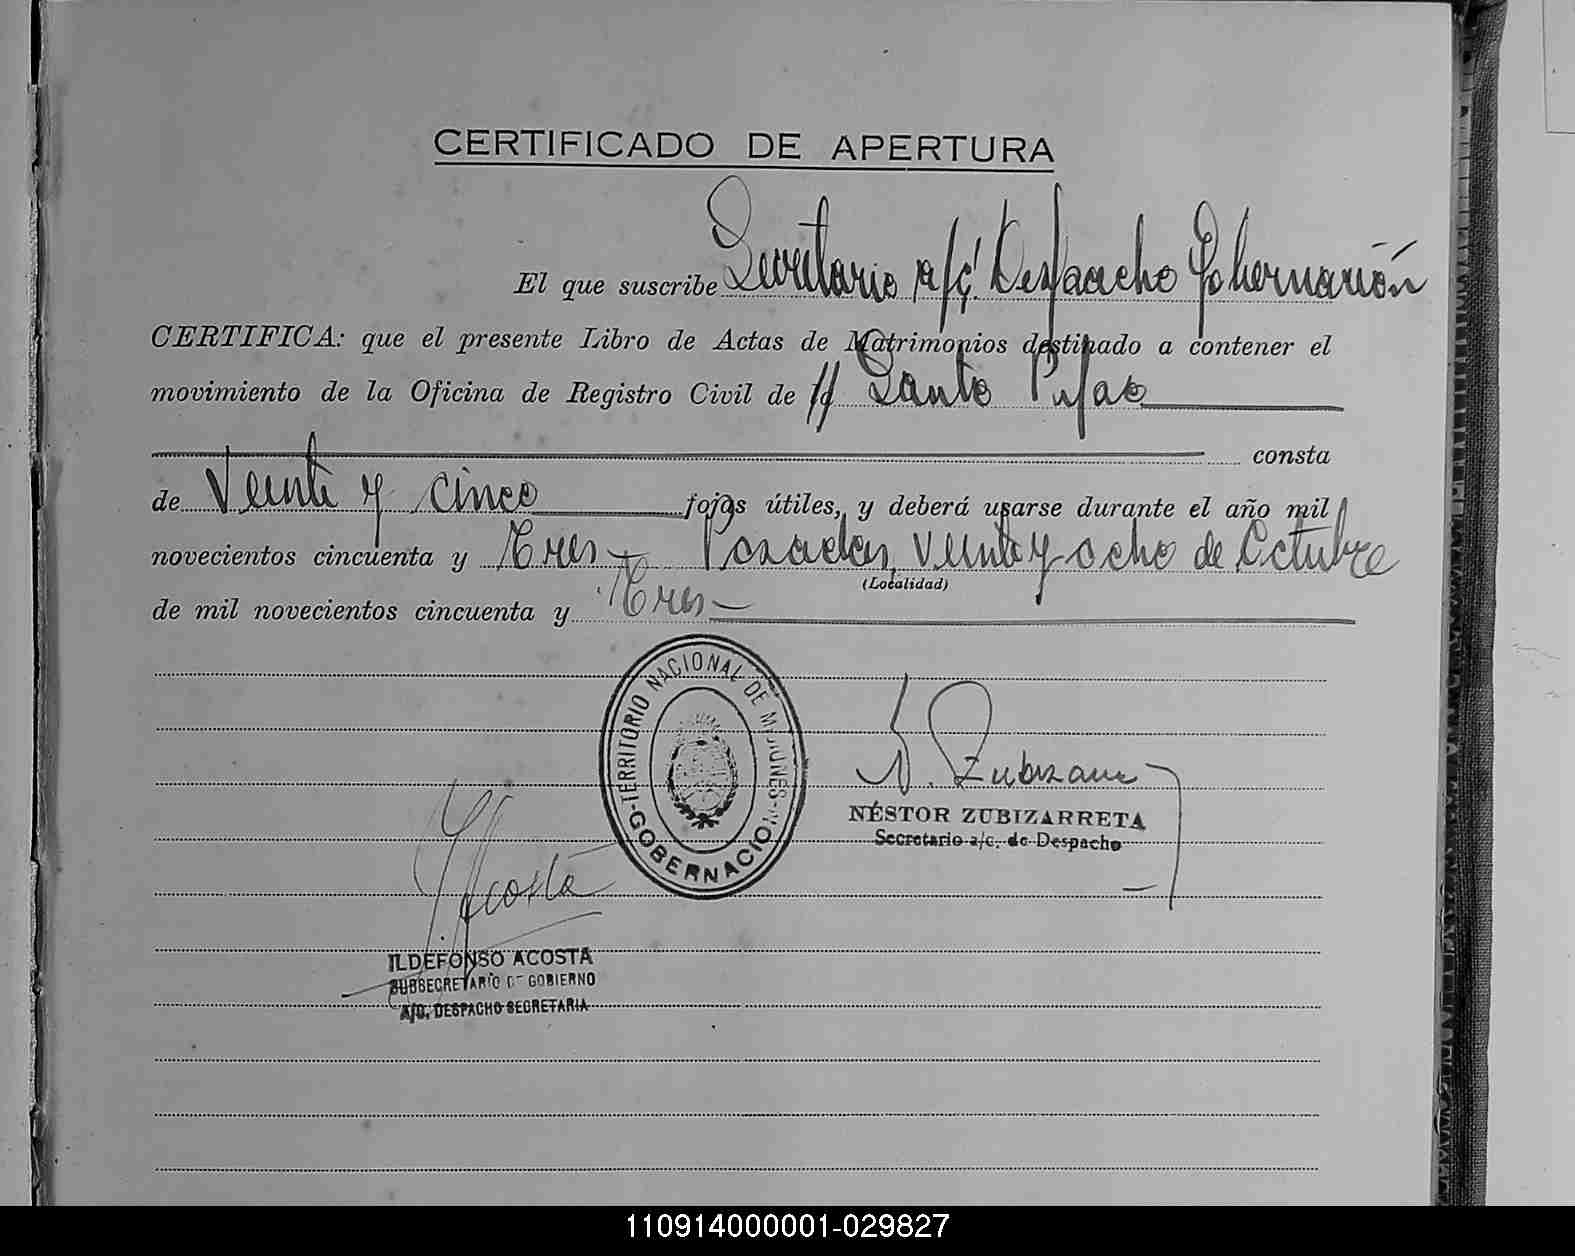 CERTIFICADO DE APERTURA
El que suscribe Secretario a/c. Despacho Gobernación
CERTIFICA: que el presente Libro de Actas de Matrimonios destinado a contener el
movimiento de la Oficina de Registro Civil de // Santo Pipao
consta
de Veinte y cinco fojas útiles, y deberá usarse durante el año mil
novecientos cincuenta y Tres- Posadas, veinte y ocho de Octubre
(Localidad)
de mil novecientos cincuenta y Tres-
TERRITORIO NACIONAL DE MISIONES
GOBERNACION
N. Zubizarreta
NÉSTOR ZUBIZARRETA
Secretario a/c. de Despacho
Acosta
ILDEFONSO ACOSTA
SUBSECRETARIO DE GOBIERNO
A/C. DESPACHO SECRETARIA
110914000001-029827